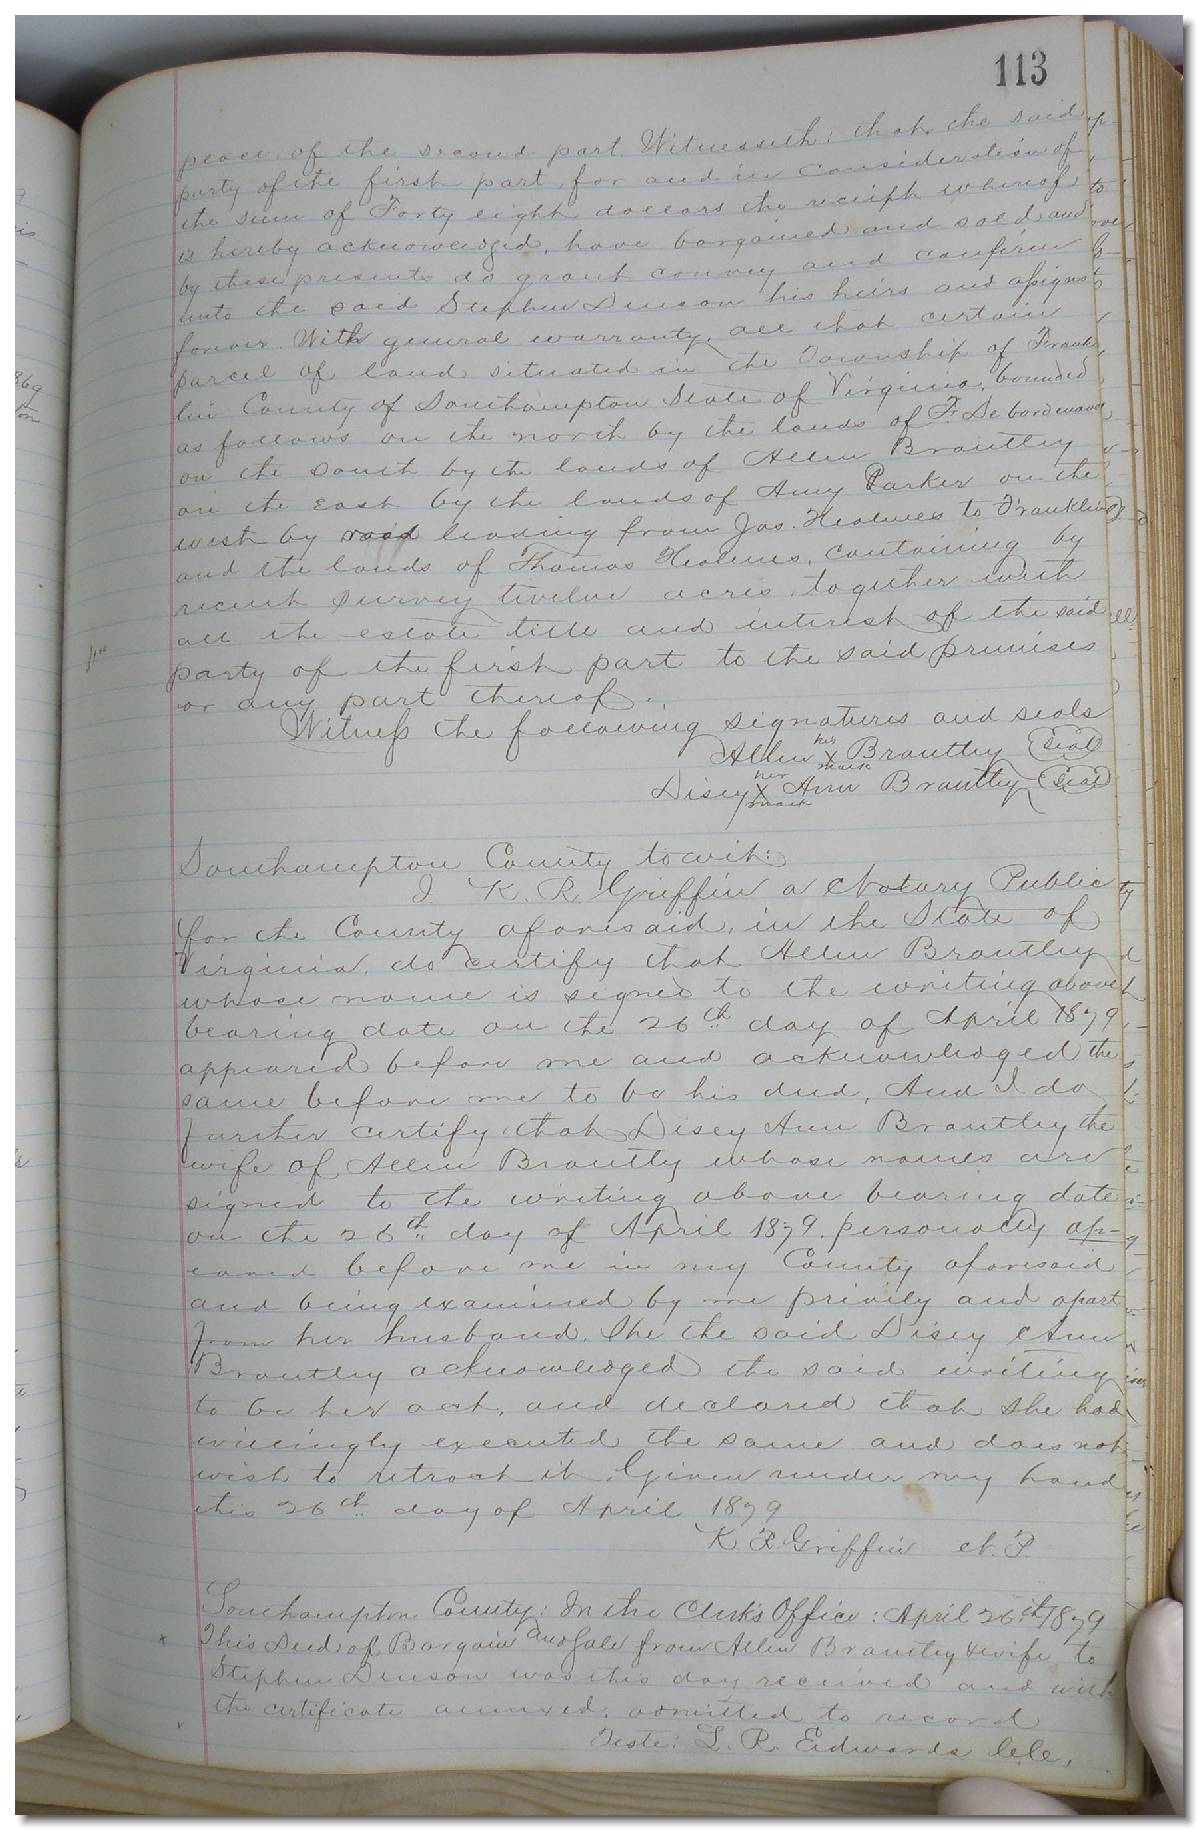 113
place of the second part. Witnesseth: that the said
party of the first part, for and in consideration of
the sum of Forty eight dollars the receipt whereof
is hereby acknowledged, have bargained and sold and
by these presents do grant convey and confirm
unto the said Stephen Denson his heirs and assigns
forever. With general warranty, all that certain
parcel of land situated in the Township of Frank
lin County of Southampton State of Virginia, bounded
as follows on the north by the lands of F.
on the south by the lands of Allen Brantley
on the East by the lands of Amy Parker on the
west by road leading from Jas. to Franklin
and the lands of Thomas containing by
recent survey twelve acres, together with
all the estate title and interest of the said
party of the first part to the said premises
or any part thereof.
Witness the following signatures and seals
Allen his X mark Brantley (Seal)
Disey her X mark Ann Brantley (Seal)
Southampton County to wit:
I K. R. Griffin a Notary Public
for the County aforesaid, in the State of
Virginia, do certify that Allen Brantley
whose name is signed to the writing above
bearing date on the 26th day of April 1879
appeared before me and acknowledged the
same before me to be his deed, And I do
further certify that Disey Ann Brantley the
wife of Allen Brantly whose names are
signed to the writing above bearing date
on the 26th day of April 1879. personally ap-
eared before me in my County aforesaid
and being examined by me privily and apart
from her husband. She the said Disey Ann
Brantley acknowledged the said writing
to be her act, and declared that she had
willingly executed the same and does not
wish to retract it. Given under my hand
this 26th day of April 1879
K. R. Griffin N. P.
Southampton County: In the Clerk's Office: April 26th 1879
This Deed of Bargain and Sale from Allen Brantley & wife to
Stephen Denson was this day received and with
the certificate annexed, admitted to record
Teste: L. R. Edwards C.C.